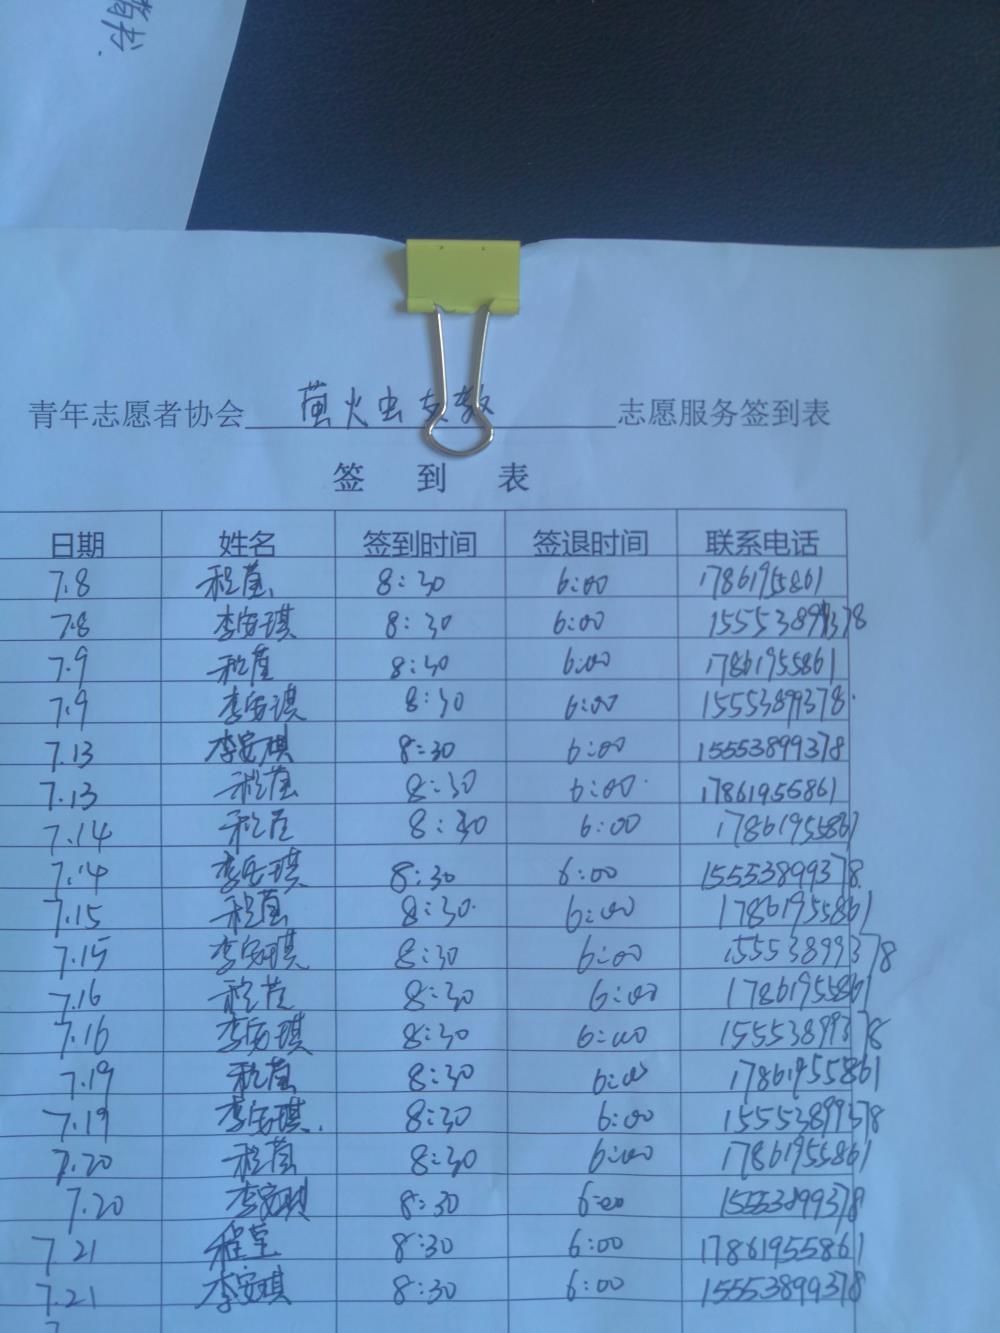 青年志愿者协会 萤火虫支教 志愿服务签到表
签 到 表
日期 姓名 签到时间 签退时间 联系电话
7.8 程莹 8:30 6:00 17861955861
7.8 李安琪 8:30 6:00 15553899378
7.9 程莹 8:30 6:00 17861955861
7.9 李安琪 8:30 6:00 15553899378
7.13 李安琪 8:30 6:00 15553899378
7.13 程莹 8:30 6:00 17861955861
7.14 程莹 8:30 6:00 17861955861
7.14 李安琪 8:30 6:00 15553899378
7.15 程莹 8:30 6:00 17861955861
7.15 李安琪 8:30 6:00 15553899378
7.16 程莹 8:30 6:00 17861955861
7.16 李安琪 8:30 6:00 15553899378
7.19 程莹 8:30 6:00 17861955861
7.19 李安琪 8:30 6:00 15553899378
7.20 程莹 8:30 6:00 17861955861
7.20 李安琪 8:30 6:00 15553899378
7.21 程莹 8:30 6:00 17861955861
7.21 李安琪 8:30 6:00 15553899378